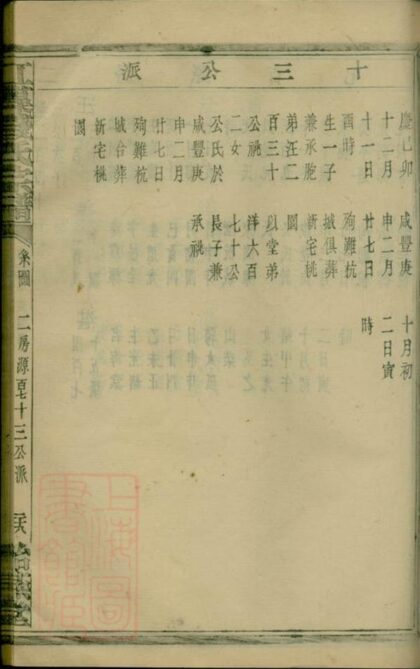 十三公派
慶己卯
十二月
十一日
酉時
生一子
兼承胞
弟汪二
百三十
公祧
二女
公氏於
咸豐庚
申二月
廿七日
殉難杭
城台葬
新宅桃
園
咸豐庚
申二月
廿七日
殉難杭
城俱葬
新宅桃
園
以堂弟
洋六百
七十公
長子兼
承祧
十月初
二日寅
時
系圖
二房源百七十三公派
上海圖書館藏